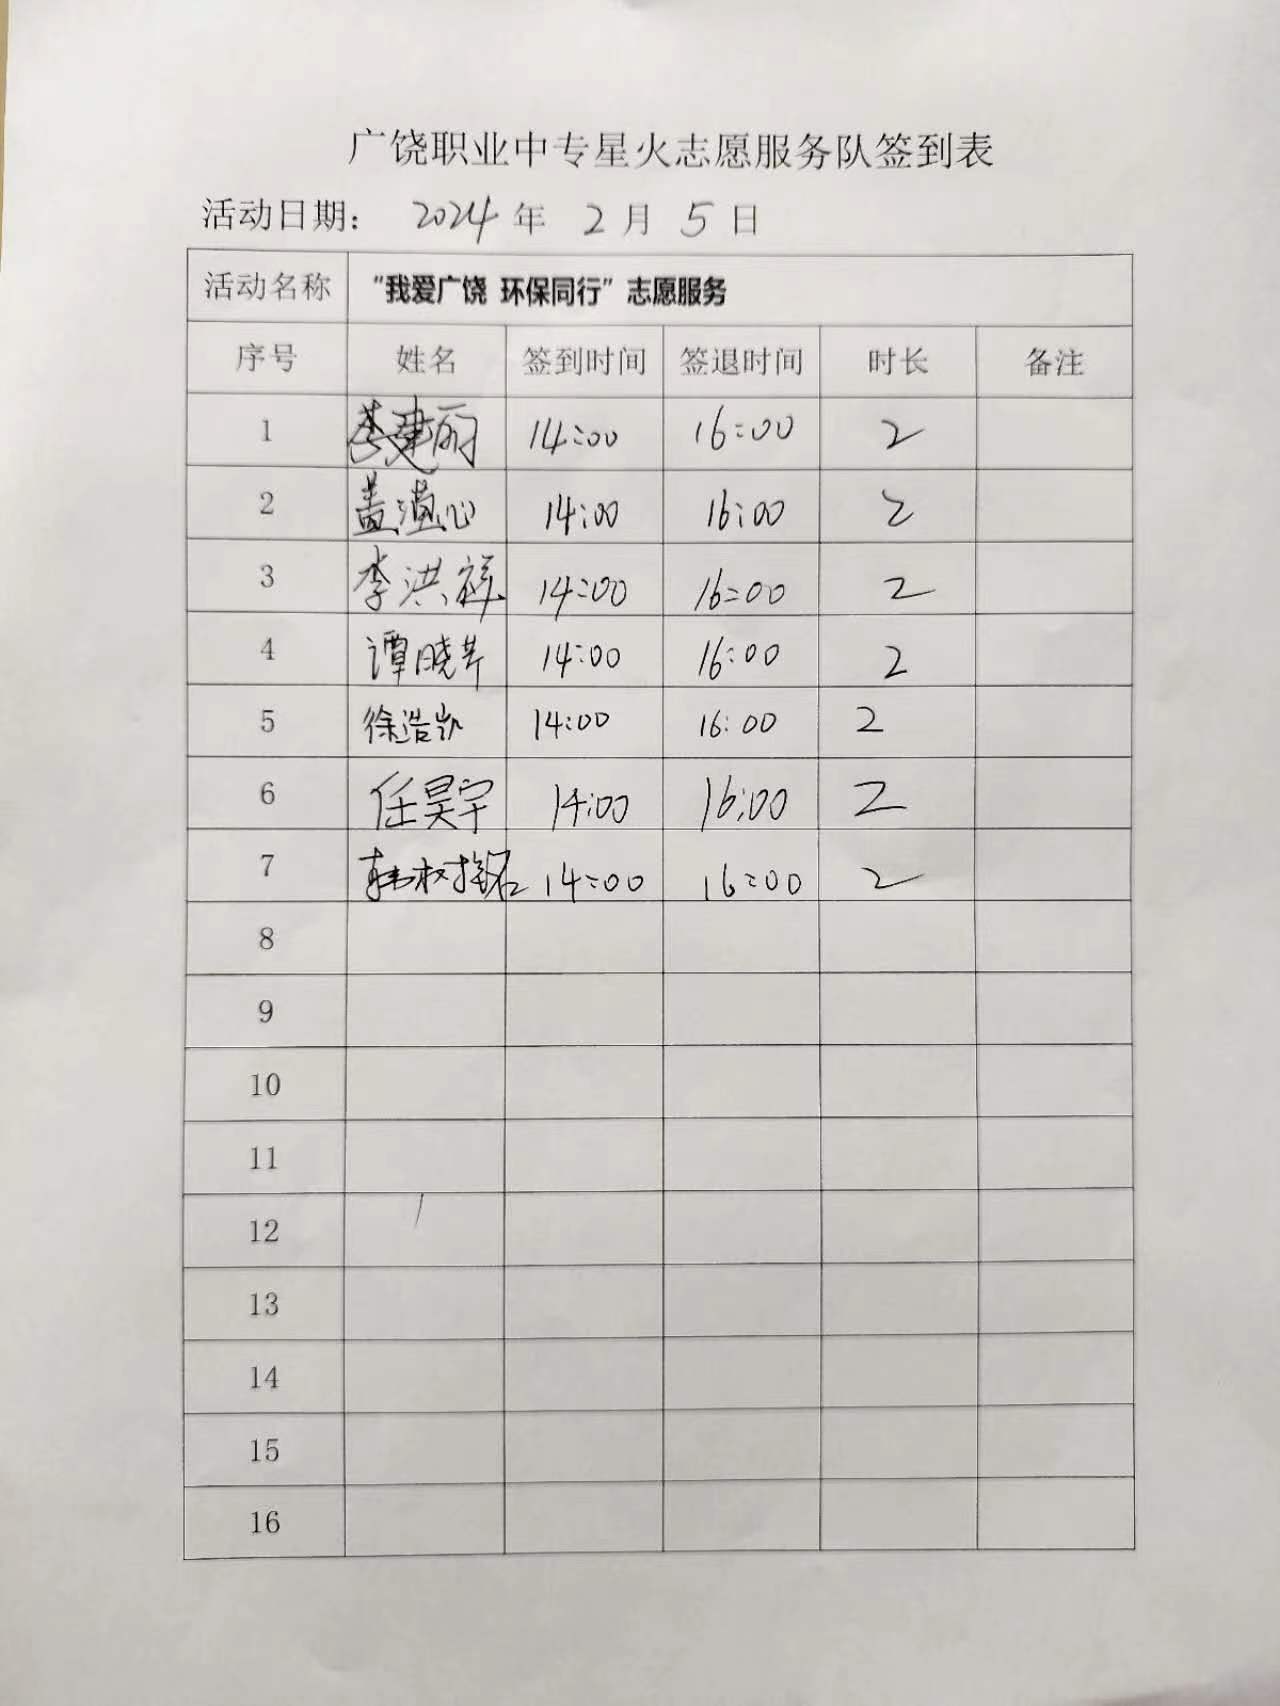 广饶职业中专星火志愿服务队签到表
活动日期： 2024 年 2 月 5 日
活动名称 “我爱广饶 环保同行”志愿服务
序号 姓名 签到时间 签退时间 时长 备注
1 李建丽 14:00 16:00 2
2 盖 心 14:00 16:00 2
3 李洪祥 14:00 16:00 2
4 谭晓芹 14:00 16:00 2
5 徐浩凯 14:00 16:00 2
6 任昊宇 14:00 16:00 2
7 韩树铭 14:00 16:00 2
8
9
10
11
12
13
14
15
16